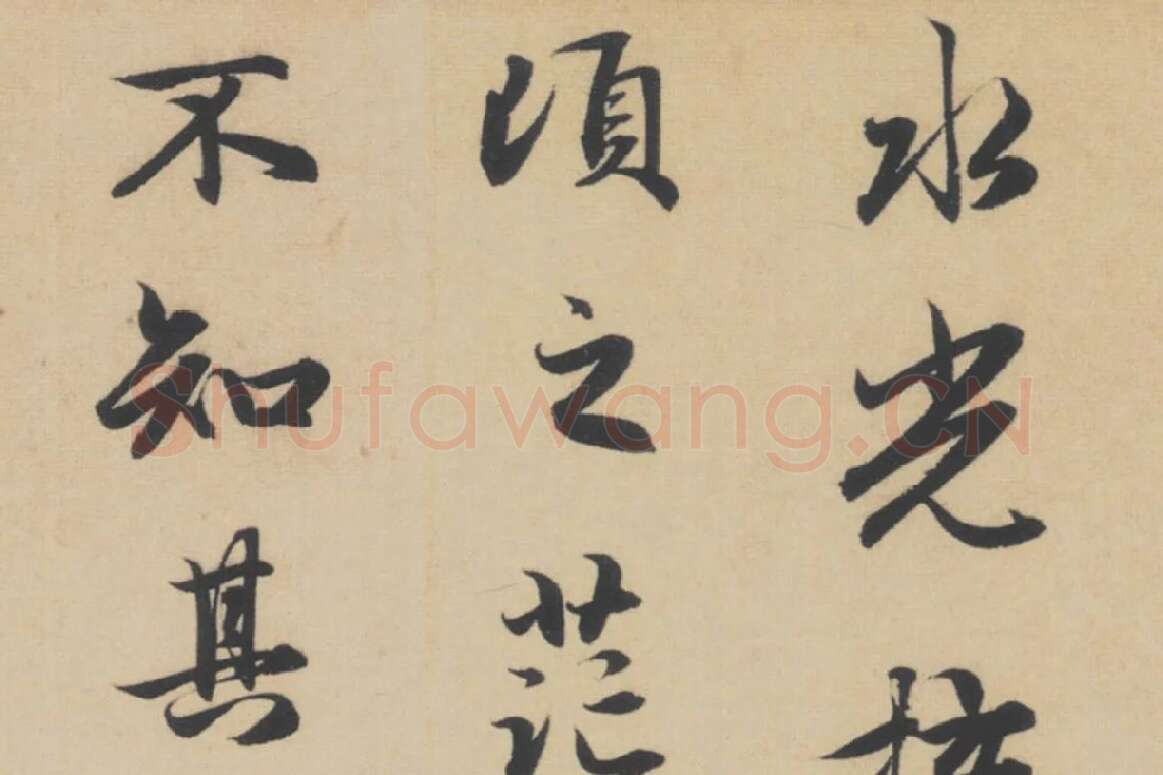 水光接
頃之茫
不知其
Shufawang.CN